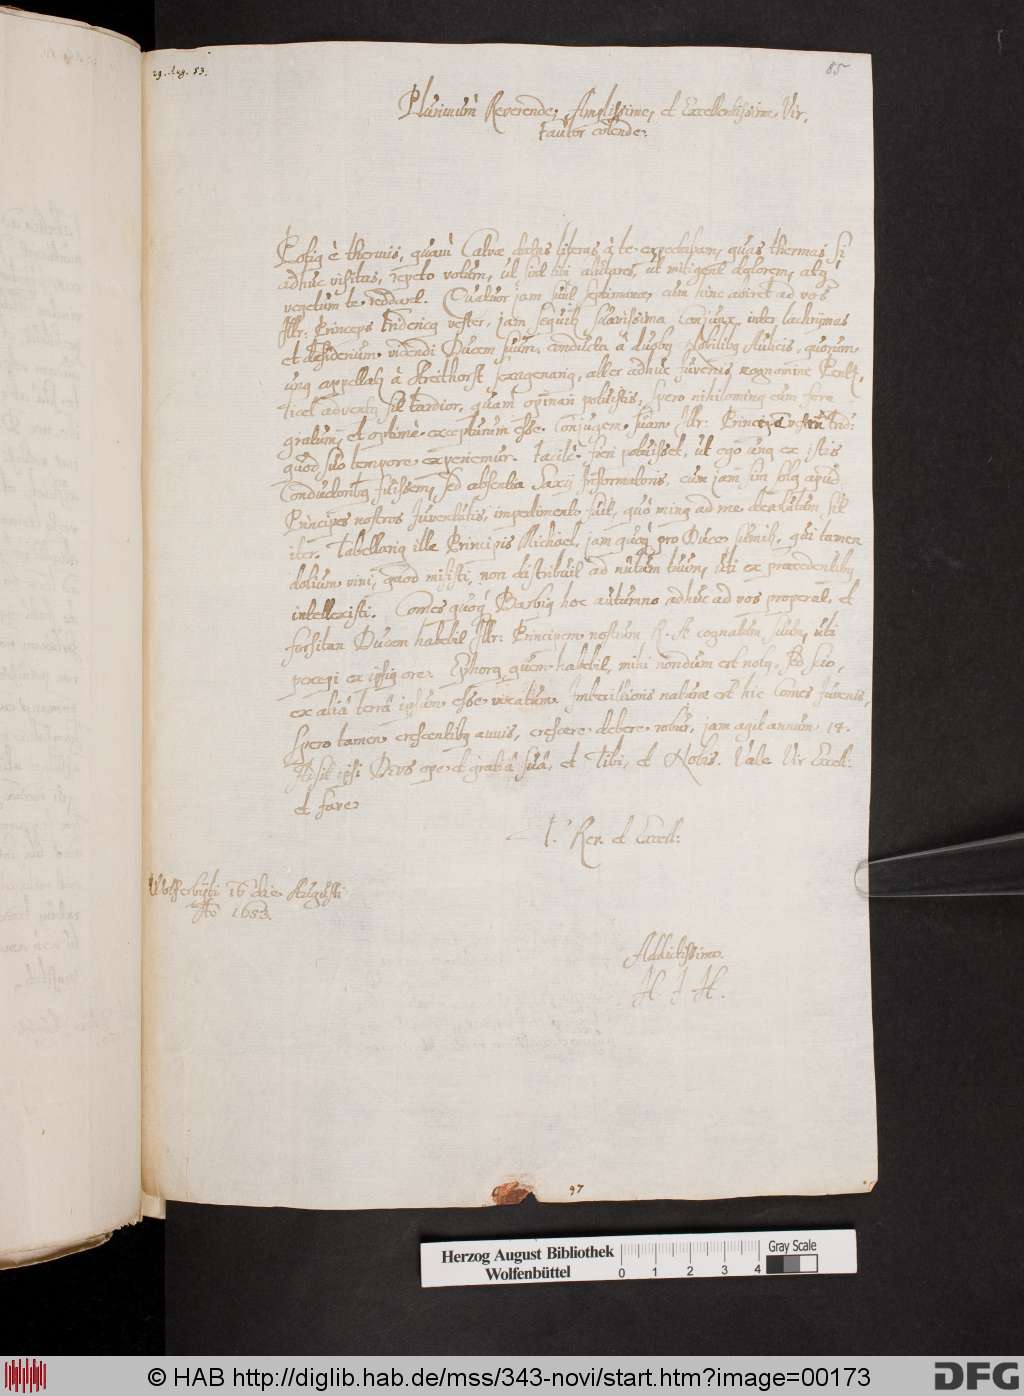 29. Aug. 53.
85
Plurimùm Reverende, Amplissime, et Excellentissime Vir,
Fautor colende.
Potiq è thermis, quàm Calvæ datas literas à te expectabam, quas thermas si
adhuc visitas, repeto votum, ut sint tibi salutares, ut mitigent dolorem, atq
vegetum te reddant. Quatuor jam sunt septimanæ, cum hinc abiret ad vos
Illr: Princeps Fridericq vester, jam sequit suavissima Conjunx, inter lachrymas
et desiderium videndi Ducem suum, conducta â duobq Nobilibq Aulicis, quorum
unq appellat à Kreithorst sexagenariq, alter adhuc juvenis cognomine Pentz,
licet adventq sit tardior, quàm opinari potuistis, spero nihilominq eum fore
gratum, et optimè excepturum esse Conjugem suam Illr: Principem vestrum Frid:
quod suo tempore experiemur. Facilè fieri potuisset, ut ego unq ex istis
Conductoribq fuissem, sed absentia Saxij Informatoris, cum jam sim solq apud
Principes nostros Juventutis, impedimento fuit, quò minq ad me devolutum sit
iter. Tabellariq ille Principis Michael, jam quoq pro Duce sumit, qui tamen
dolium vini, quod misisti, non distribuit ad nutum tuum, uti ex præcedentibq
intellexisti. Comes quoq Barbiq hoc autumno adhuc ad vos properat, et
forsitan Ducem habebit Illr: Principem nostrum R. A cognatum suum, uti
percepi ex ipsiq ore. Ephorq quem habebit, mihi nondum est notq, sed scio,
ex aliâ terrâ ipsum esse vocatum. Imbecillioris naturæ est hic Comes Juvenis,
spero tamen crescentibq annis, crescere debere robur, jam agit annum 14.
Adsit ipsi Deus ope et gratiâ suâ, et Tibi, et Nobis. Vale Vir Excell:
et fave
T. Rev. et Excell:
Wolferbyti 16 die Augusti
Ao 1653.
Addictissimo
H J H.
97
Herzog August Bibliothek
Wolfenbüttel
0 1 2 3 4
Gray Scale
© HAB http://diglib.hab.de/mss/343-novi/start.htm?image=00173
DFG